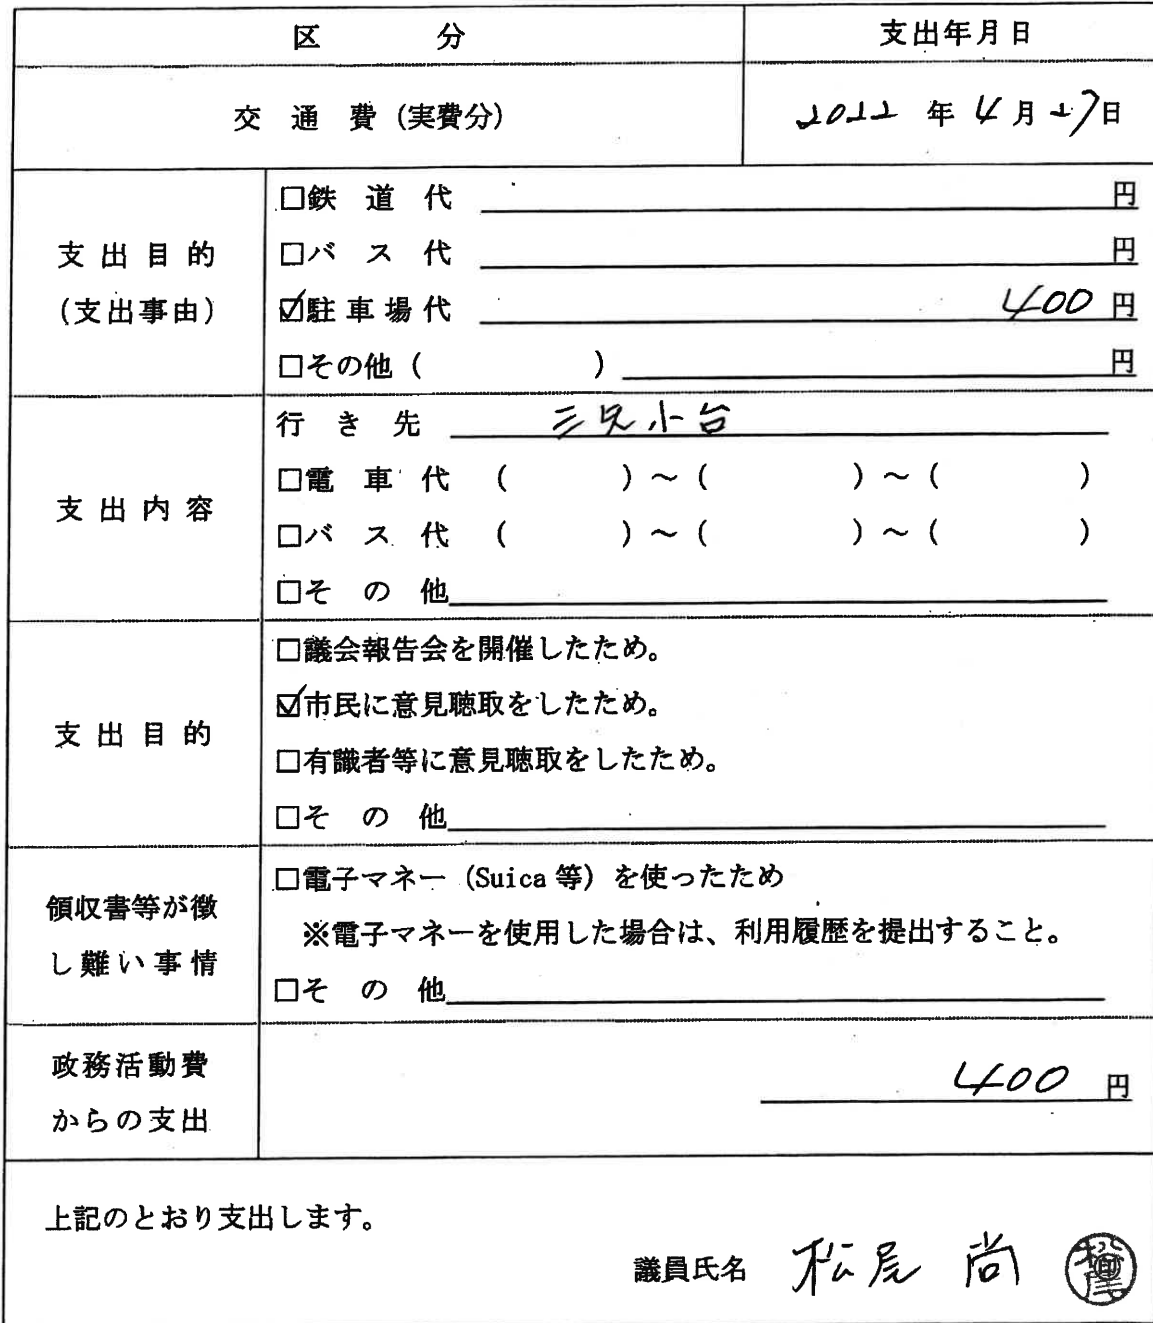 区 分 支出年月日
交 通 費 (実費分) 2022 年 4 月 27日
支 出 目 的
(支出事由)
□鉄 道 代 円
□バ ス 代 円
☑駐 車 場 代 400 円
□その他 ( ) 円
支 出 内 容
行 き 先 三兄小台
□電 車 代 ( ) ～ ( ) ～ ( )
□バ ス 代 ( ) ～ ( ) ～ ( )
□そ の 他
支 出 目 的
□議会報告会を開催したため。
☑市民に意見聴取をしたため。
□有識者等に意見聴取をしたため。
□そ の 他
領収書等が徴
し難い事情
□電子マネー (Suica 等) を使ったため
※電子マネーを使用した場合は、利用履歴を提出すること。
□そ の 他
政務活動費
からの支出
400 円
上記のとおり支出します。
議員氏名 松尾 尚